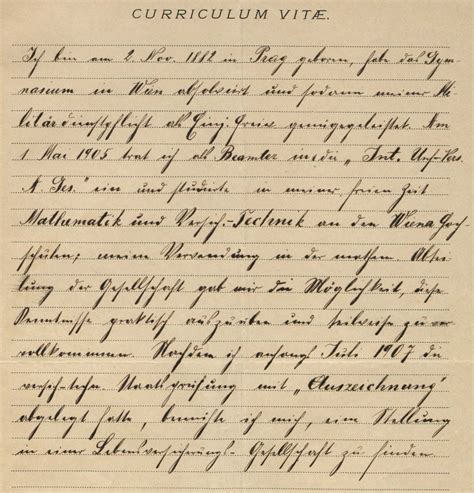 CURRICULUM VITÆ.
Ich bin am 2. Nov. 1882 in Prag geboren, habe das Gym-
nasium in Wien absolviert und sodann meiner Mi-
litärdienstpflicht als Einj. Freiw. genügegeleistet. Am
1. Mai 1905 trat ich als Beamter in die „Int. Unf.-Vers.
A. Ges." ein und studierte in meiner freien Zeit
Mathematik und Versich.-Technik an den Wiener Hoch-
schulen; meine Verwendung in der mathem. Abtei-
lung der Gesellschaft gab mir die Möglichkeit, diese
Kenntnisse praktisch auszuüben und teilweise zu ver-
vollkommnen. Nachdem ich anfangs Juli 1907 die
versich.-techn. Staatsprüfung mit „Auszeichnung"
abgelegt hatte, bemühte ich mich, eine Stellung
in einer Lebensversicherungs-Gesellschaft zu finden.